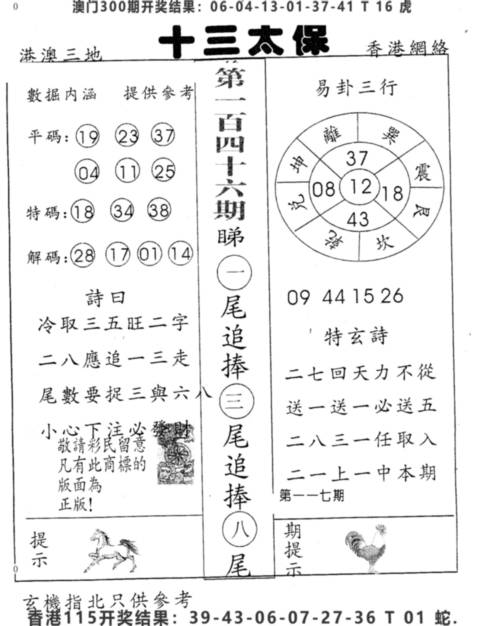 澳门300期开奖结果：06-04-13-01-37-41 T 16 虎
十三太保
港澳三地
香港網絡
數据内涵 提供參考
平碼：19 23 37
04 11 25
特碼：18 34 38
解碼：28 17 01 14
詩曰
冷取三五旺二字
二八應追一三走
尾數要捉三與六八
小心下注必發財
敬請彩民留意
凡有此商標的
版面為
正版！
提示
第一百四十六期
睇
一
尾
追
捧
三
尾
追
捧
八
尾
易卦三行
離 巽
坤 震
兑 艮
乾 坎
37
08 12 18
43
09 44 15 26
特玄詩
二七回天力不從
送一送一必送五
二八三一任取入
二一上一中本期
第一一七期
期提示
玄機指北只供參考
香港115开奖结果：39-43-06-07-27-36 T 01 蛇.